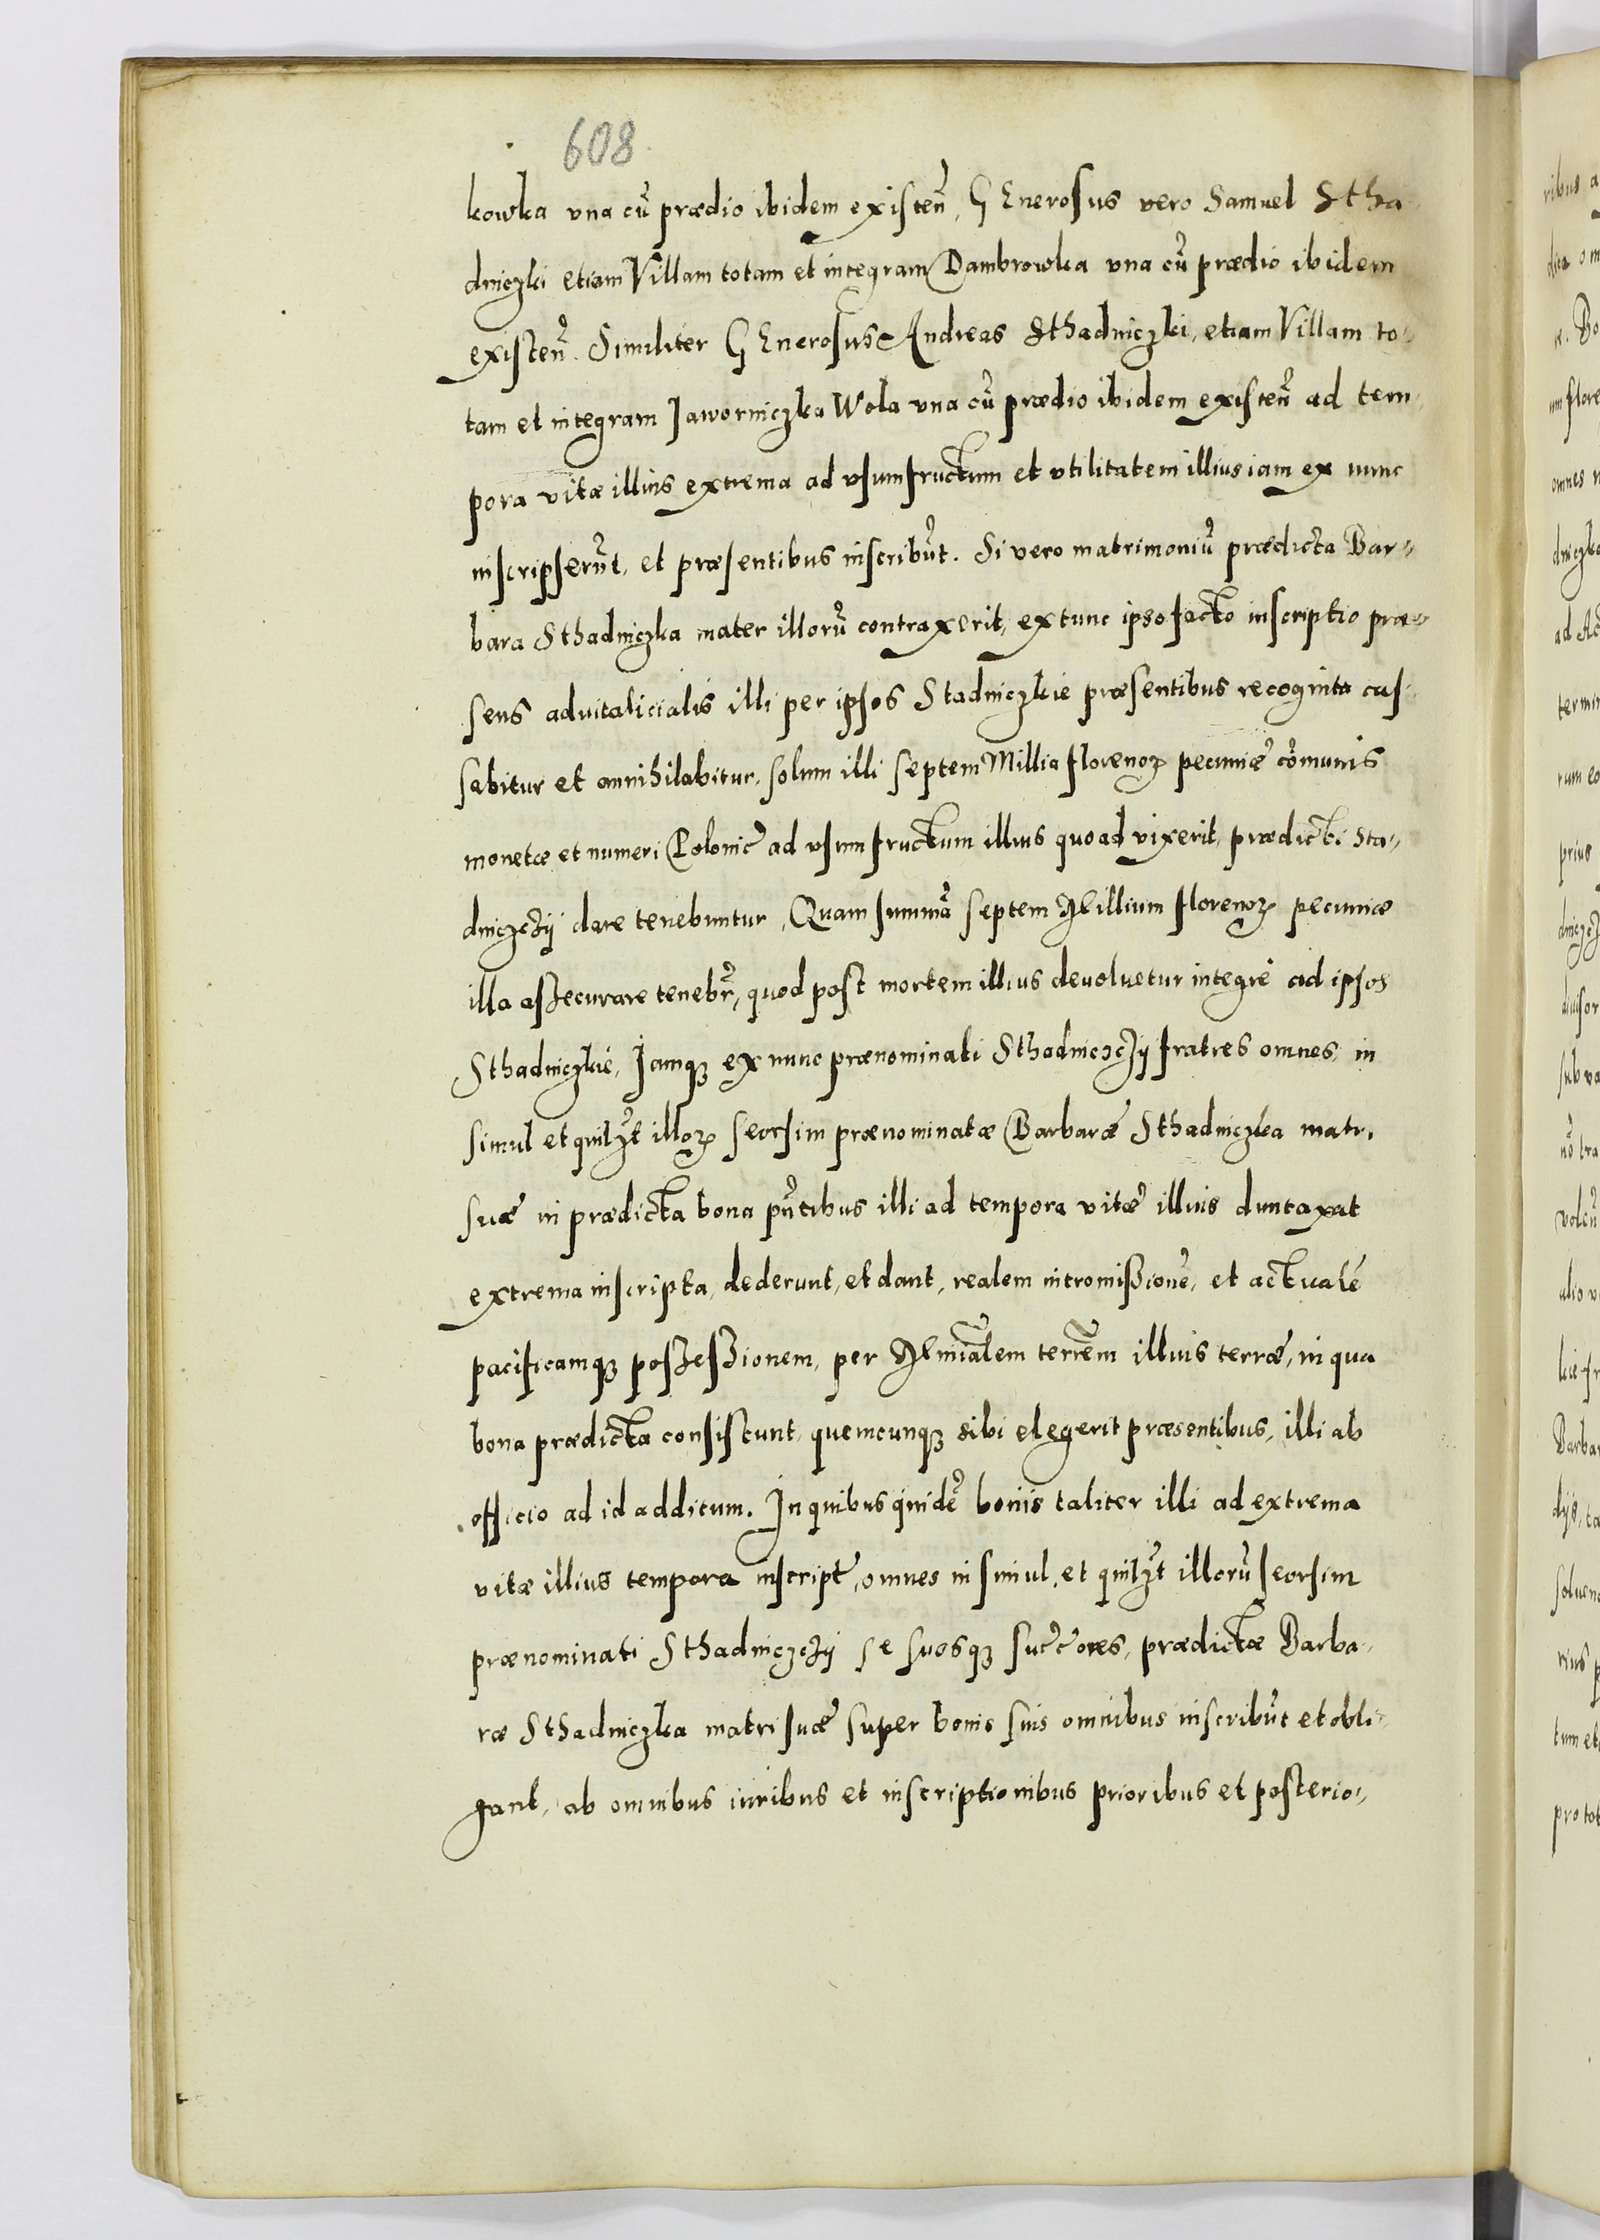 608
kowka vna cũ prædio ibidem existen̄, GEnerosus vero Samuel Stha-
dniczki etiam Villam totam et integram Dambrowka vna cũ prædio ibidem
existen̄. Similiter GEnerosus Andreas Sthadniczki, etiam Villam to-
tam et integram Jaworniczka Wola vna cũ prædio ibidem existen̄ ad tem-
pora vitæ illius extrema ad vsumfructum et vtilitatem illius iam ex nunc
inscripserũt, et præsentibus inscribũt. Si vero matrimoniũ prædicta Bar-
bara Sthadniczka mater illorũ contraxerit, extunc ipso facto inscriptio præ-
sens aduitalicialis illi per ipsos Stadniczkie præsentibus recognita cas-
sabitur et annihilabitur, solum illi septem Millia florenoꝝ pecuniæ cõmunis
monetæ et numeri Polonic̃ ad vsumfructum illius quoad vixerit, prædicti Sta-
dniczczÿ dare tenebuntur, Quam summã septem Millium florenoꝝ pecuniæ
illa assecurare tenebr̃, quod post mortem illius deuoluetur integrè ad ipsos
Sthadniczkie, Jamqꝫ ex nunc prænominati Sthadniczczÿ fratres omnes, in
simul et quilꝫt illoꝝ seorsim prænominatæ Barbaræ Sthadniczka matri
suæ in prædicta bona pñtibus illi ad tempora vitæ illius duntaxat
extrema inscripta, dederunt, et dant, realem intromissionẽ, et actualẽ
pacificamqꝫ possessionem, per Mini͂alem terre͂m illius terræ, in qua
bona prædicta consistunt, quemcunqꝫ sibi elegerit præsentibus, illi ab
officio ad id additum. In quibus quidẽ bonis taliter illi ad extrema
vitæ illius tempora inscript̃, omnes insimul, et quilꝫt illorũ seorsim
prænominati Sthadniczczÿ se suosqꝫ succ̃ores, prædictæ Barba-
ræ Sthadniczka matri suæ super bonis suis omnibus inscribũt et obli-
gant, ab omnibus iuribus et inscriptionibus prioribus et posterio-